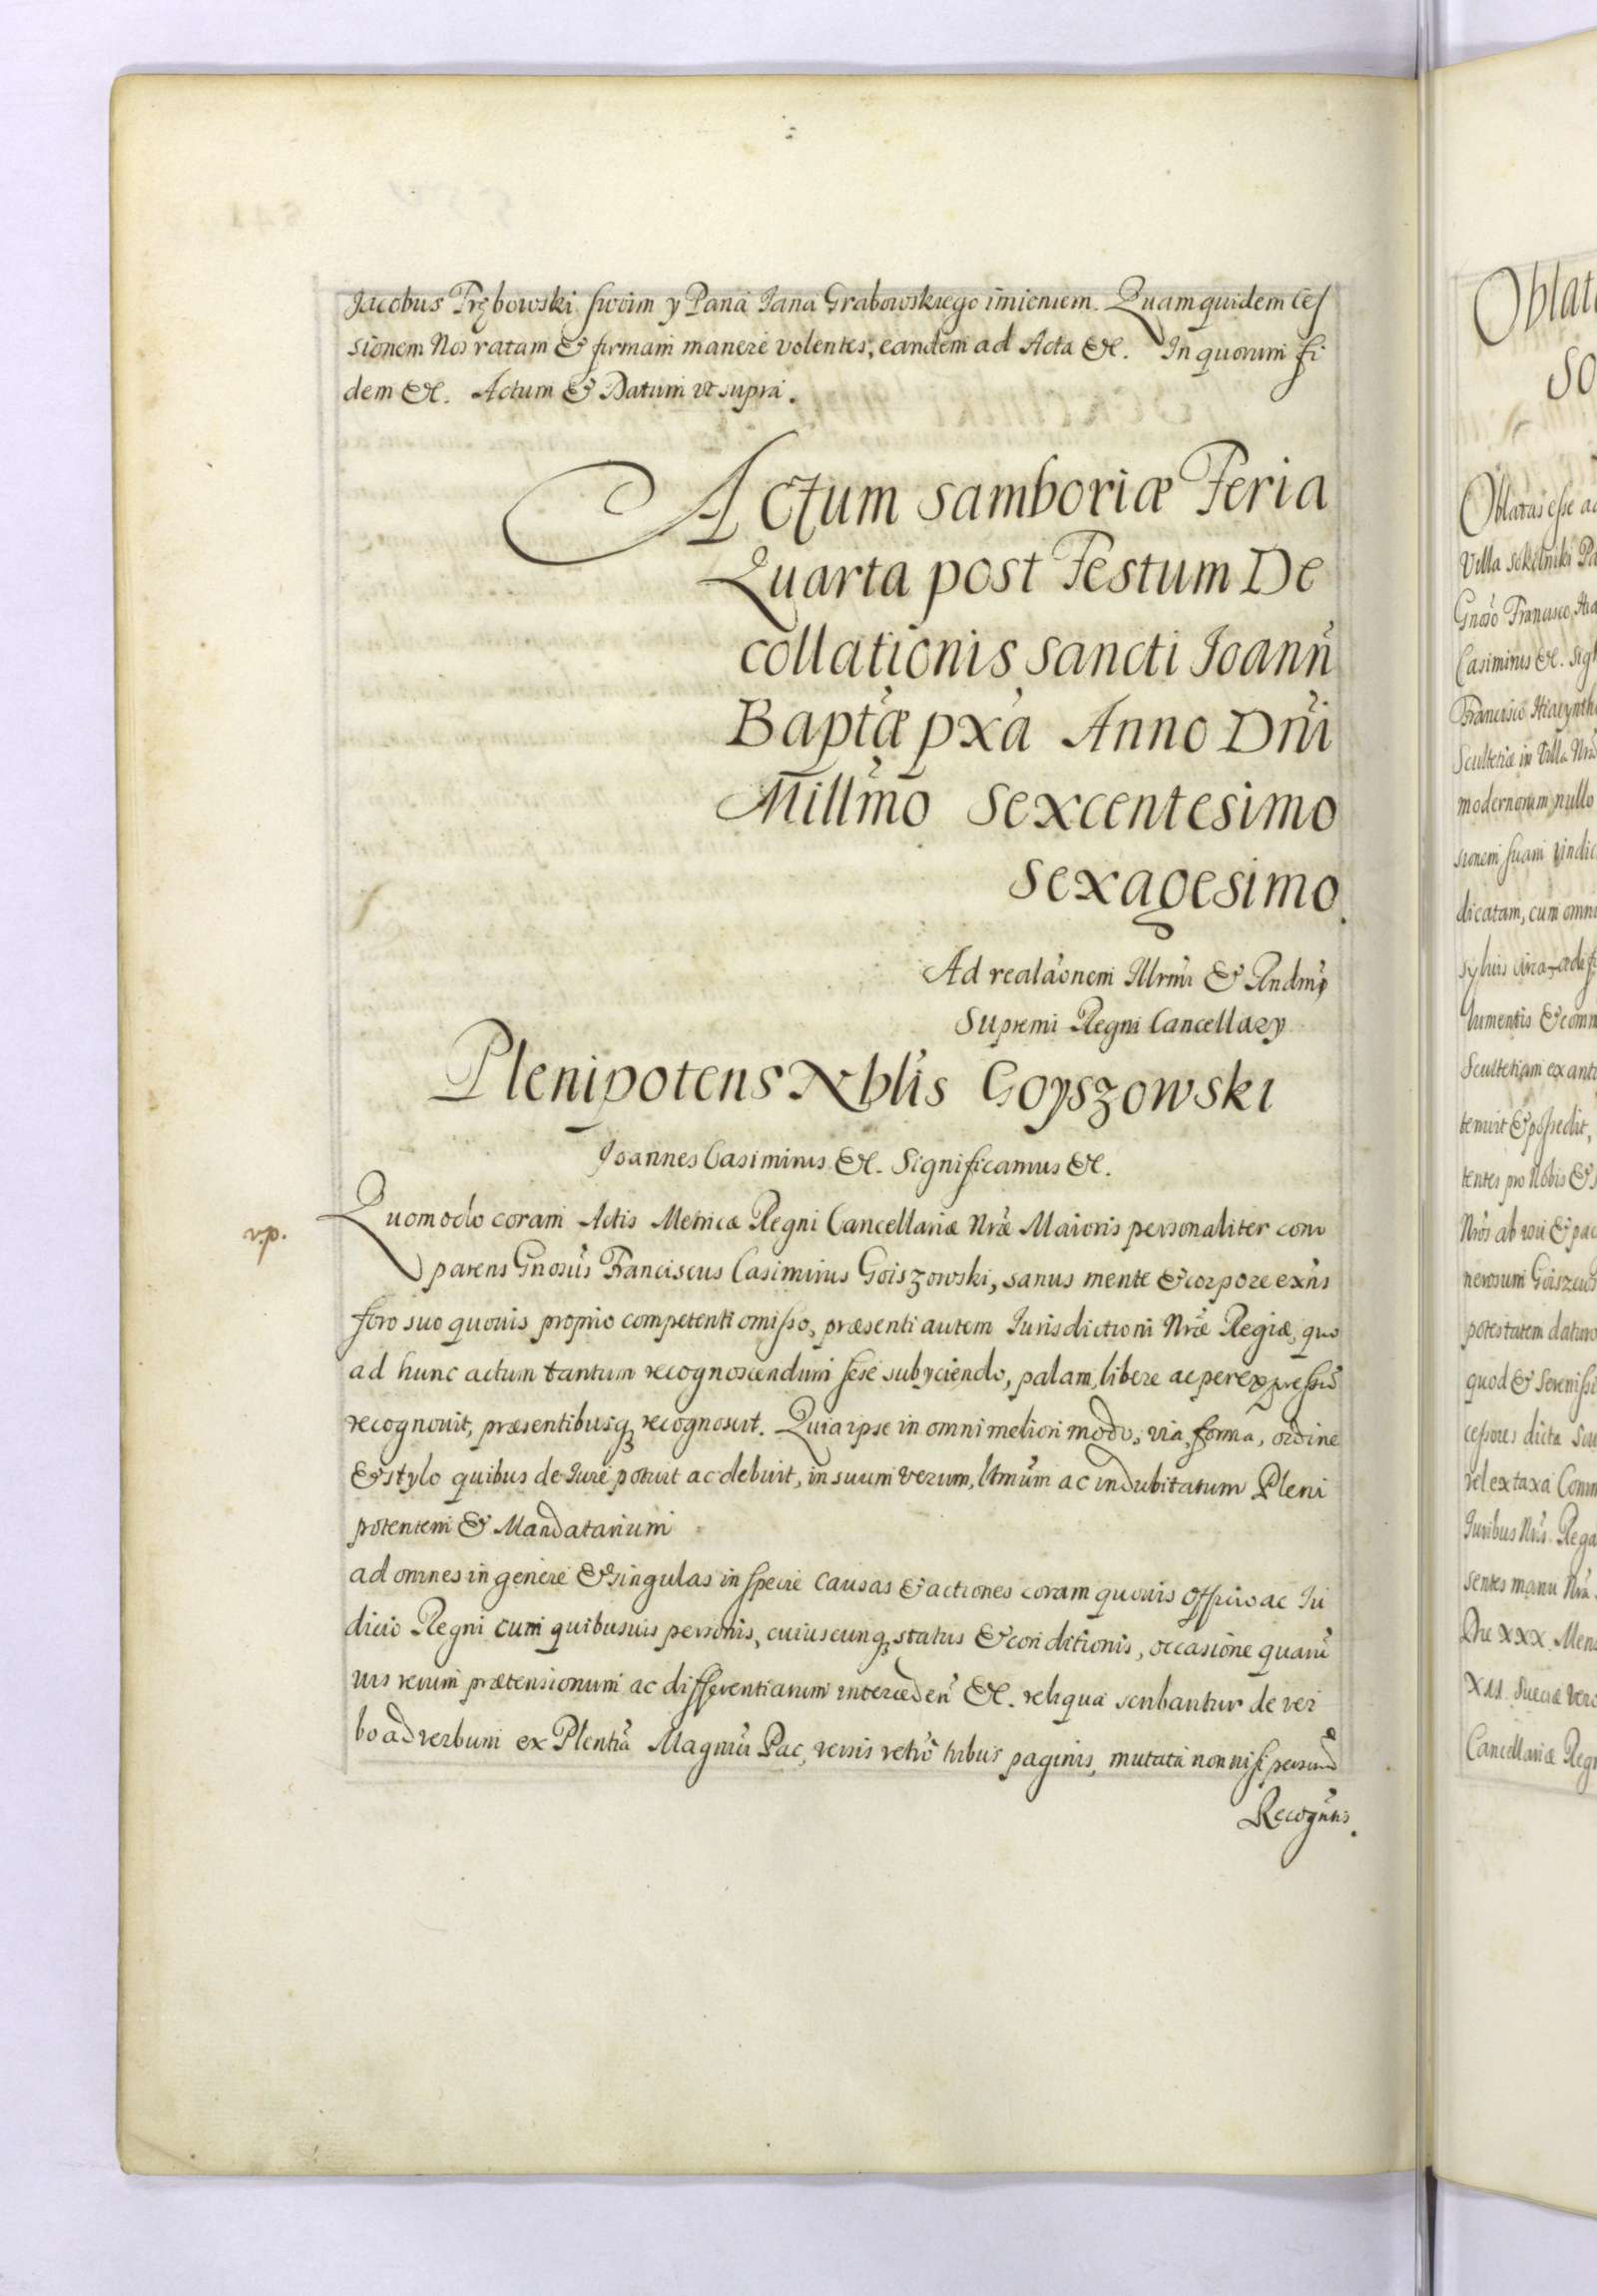 Jacobus Trębowski swoim y Pana Jana Grabowskiego imieniem. Quam quidem Ces
sionem Nos ratam & firmam manere volentes, eandem ad Acta &c. In quorum fi
dem &c. Actum & Datum ut supra.
Actum Samboriæ Feria
Quarta post Festum De
collationis Sancti Joann
Baptæ pxa Anno Dni
Millmo Sexcentesimo
Sexagesimo.
Ad realaonem Illrmi & Rndmi
Supremi Regni Cancellary
Plenipotens Nblis Goyszowski
Joannes Casimirus &c. Significamus &c.
v.p.
Quomodo coram Actis Metricæ Regni Cancellariæ Nræ Maioris personaliter com
parens Gnosus Franciscus Casimirus Goiszowski, sanus mente & corpore exns
foro suo quouis proprio competenti omisso, præsenti autem Jurisdictioni Nræ Regiæ, quo
ad hunc actum tantum recognoscendum sese subyciendo, palam, libere ac per expressum
recognouit, præsentibusq recognoscit. Quia ipse in omni meliori modo, via, forma, ordine
& stylo quibus de Jure potuit ac debuit, in suum verum, ltmum ac indubitatum Pleni
potentem & Mandatarium
ad omnes in genere & singulas in specie causas & actiones coram quouis Officio ac Ju
dicio Regni cum quibusuis personis, cuiuscunq status & conditionis, occasione quaru
uis rerum prætensionum ac differentiarum interceden &c. reliqua scribantur de ver
bo ad verbum ex Plentia Magnici Pac, versis retro tribus paginis, mutata non nisi persona
Recogntis.
Oblat
So
Oblatas esse ac
Villa Sokolniki Pa
Gnoso Francisco Hia
Casimirus &c. Sig
Francisco Hiacyntho
Scultetiæ in Villa Nra
modernorum nullo
sionem suam vindic
dicatam, cum omni
syluis
lumentis & comm
Scultetiam ex anti
tenuit & possedit,
tentes pro Nobis & S
Nros ab usu & pac
nerosum Goiszow
potestatem daturo
quod & Serenissi
cessores dicta Scu
vel ex taxa Comm
Juribus Nris Rega
sentes manu Nra
Die XXX Mens
XII. Sueciæ vero
Cancellariæ Regn